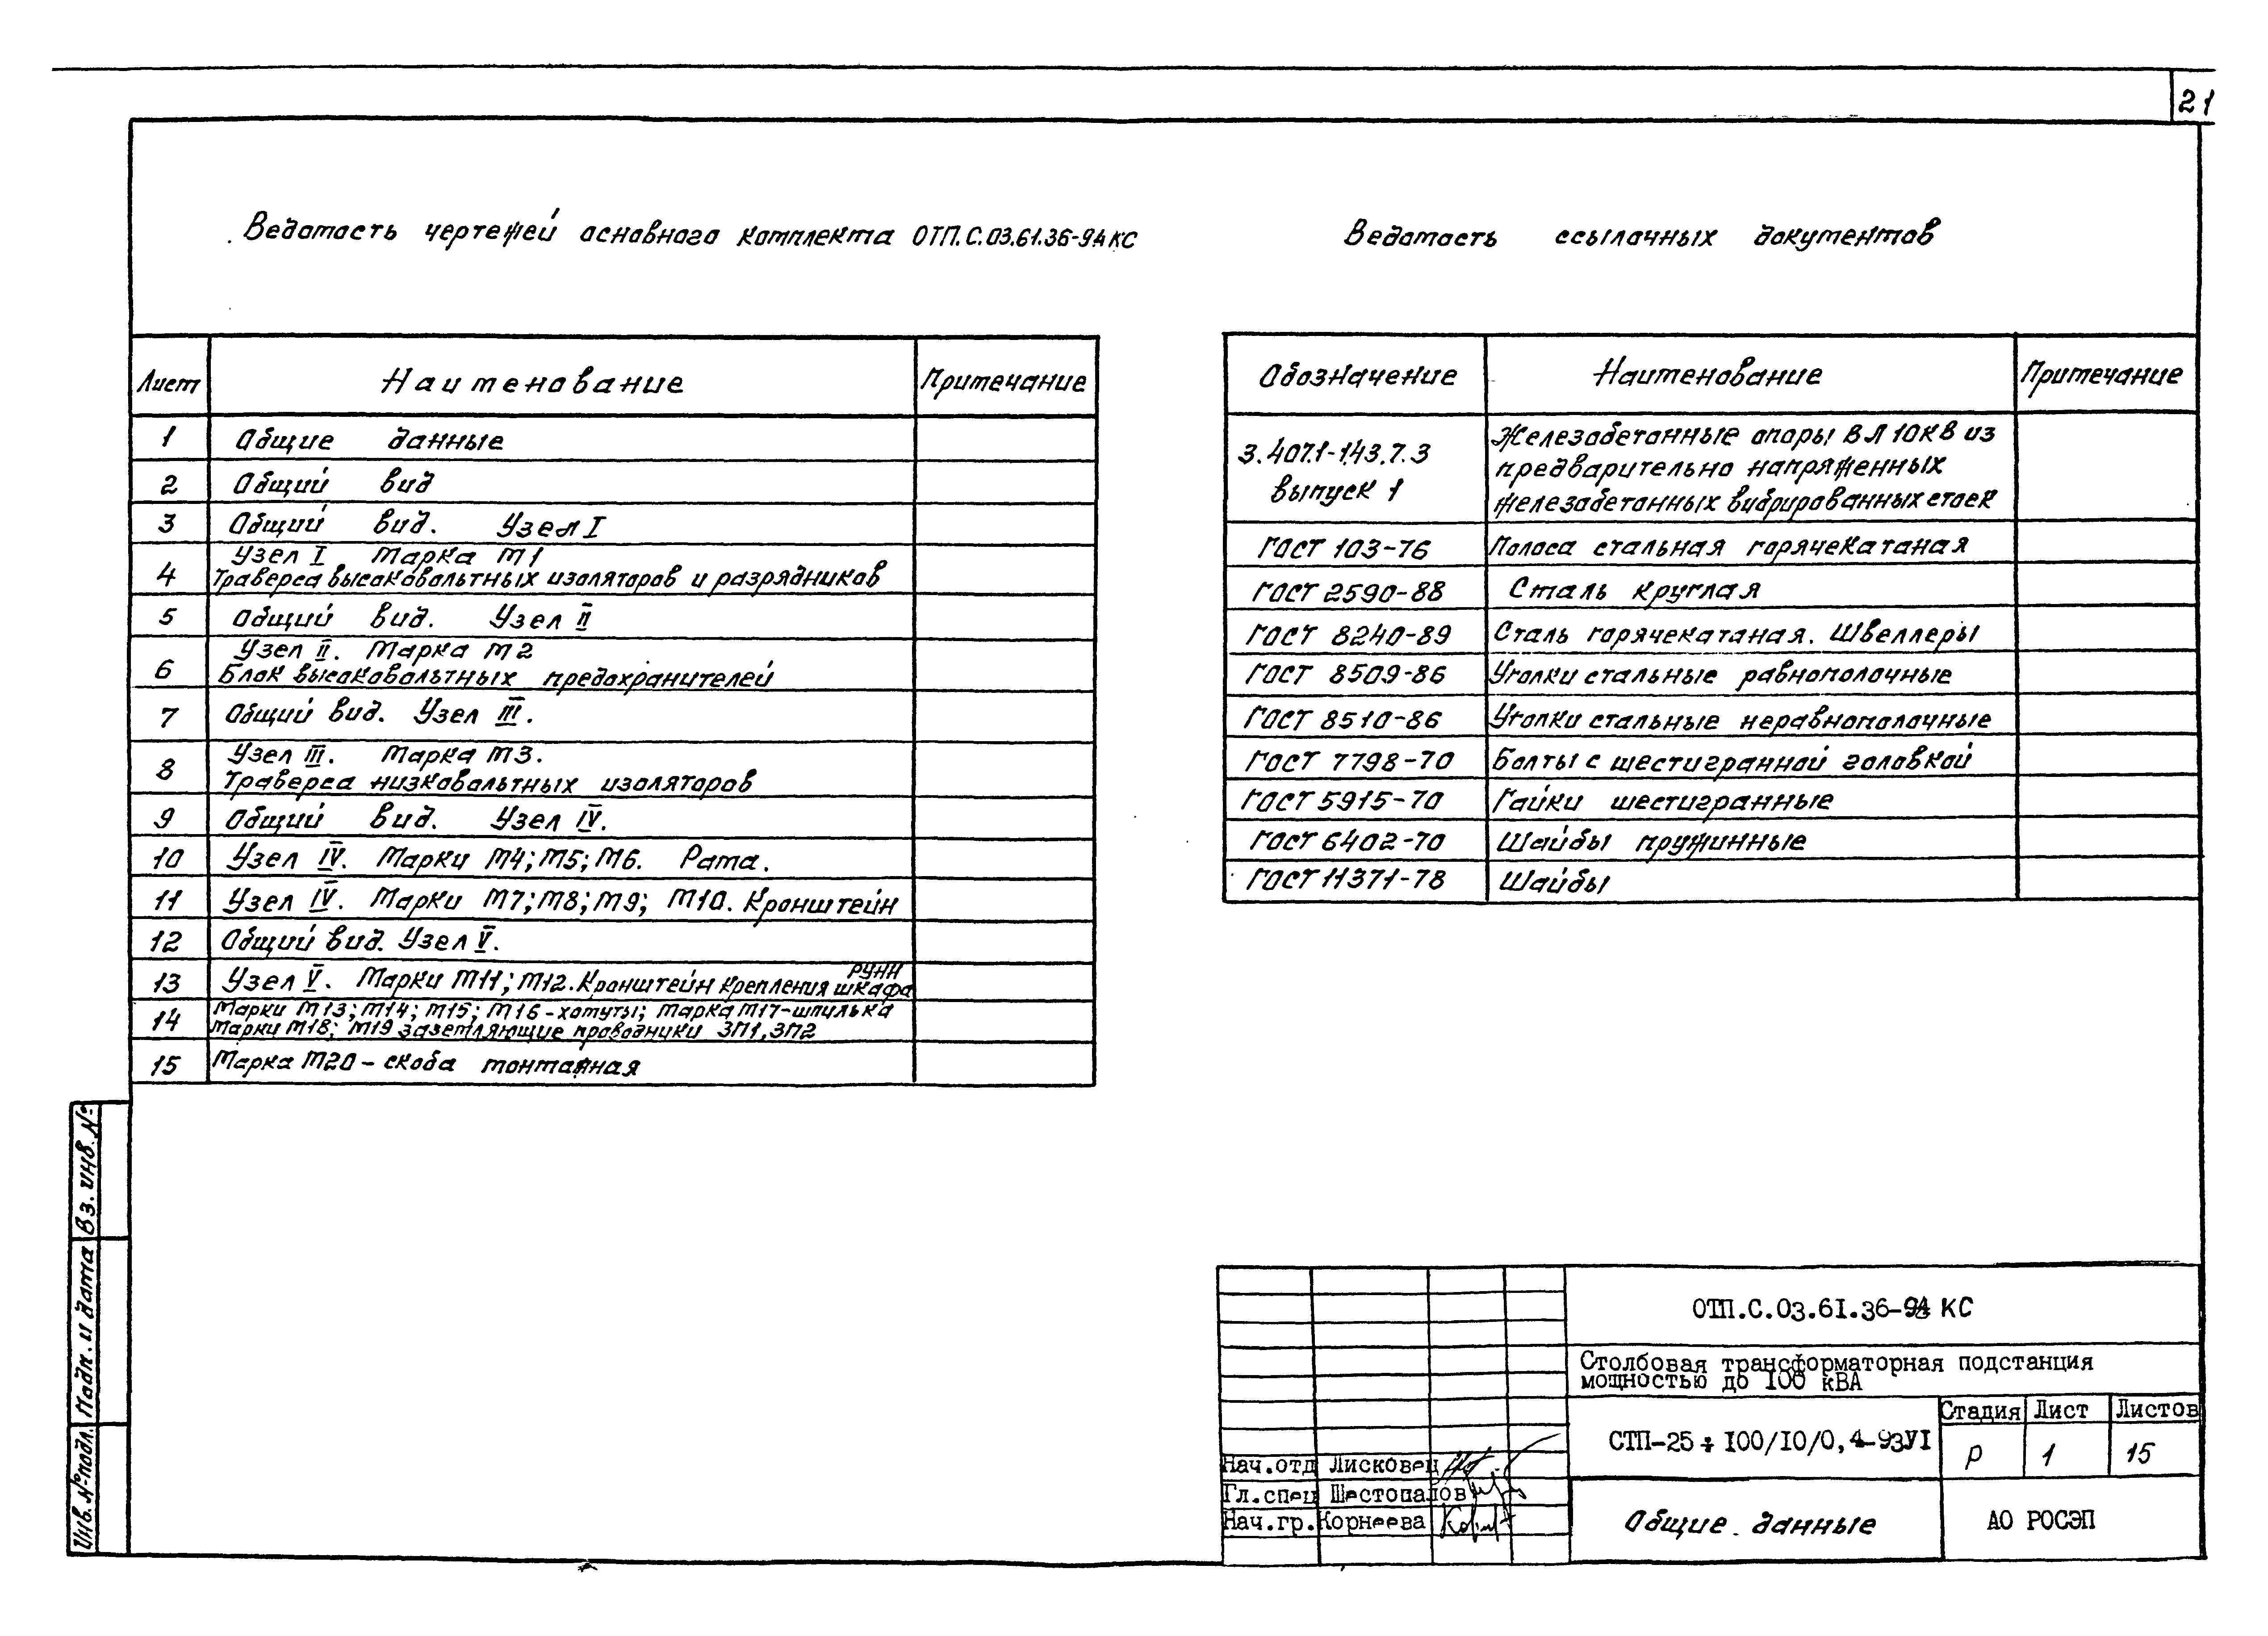 21
Ведомость чертежей основного комплекта ОТП.С.03.61.36-94 КС
Лист Наименование Примечание
1 Общие данные
2 Общий вид
3 Общий вид. Узел I
4 Узел I Марка М1
Траверса высоковольтных изоляторов и разрядников
5 Общий вид. Узел II
6 Узел II. Марка М2
Блок высоковольтных предохранителей
7 Общий вид. Узел III.
8 Узел III. Марка М3.
Траверса низковольтных изоляторов
9 Общий вид. Узел IV.
10 Узел IV. Марки М4; М5; М6. Рама.
11 Узел IV. Марки М7; М8; М9; М10. Кронштейн
12 Общий вид. Узел V.
13 Узел V. Марки М11; М12. Кронштейн крепления шкафа РУНН
14 Марки М13; М14; М15; М16 - хомуты; Марка М17 - шпилька
Марки М18; М19 заземляющие проводники ЗП1, ЗП2
15 Марка М20 - скоба монтажная
Ведомость ссылочных документов
Обозначение Наименование Примечание
3.407.1-143.7.3 выпуск 1
Железобетонные опоры ВЛ 10кВ из
предварительно напряженных
железобетонных вибрированных стоек
ГОСТ 103-76 Полоса стальная горячекатаная
ГОСТ 2590-88 Сталь круглая
ГОСТ 8240-89 Сталь горячекатаная. Швеллеры
ГОСТ 8509-86 Уголки стальные равнополочные
ГОСТ 8510-86 Уголки стальные неравнополочные
ГОСТ 7798-70 Болты с шестигранной головкой
ГОСТ 5915-70 Гайки шестигранные
ГОСТ 6402-70 Шайбы пружинные
ГОСТ 11371-78 Шайбы
Вз. инв. №
Подп. и дата
Инв. № подл.
ОТП.С.03.61.36-94 КС
Столбовая трансформаторная подстанция
мощностью до 100 кВА
СТП-25÷100/10/0,4-93У1
Стадия Лист Листов
Р 1 15
Нач.отд Лисковец
Гл.спец Шестопалов
Нач.гр. Корнеева
Общие данные
АО РОСЭП